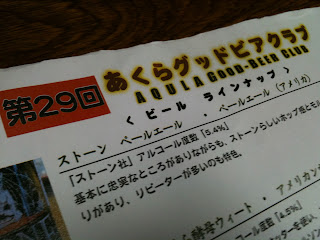 第29回
あくらグッドビアクラブ
AQULA GOOD-BEER CLUB
< ビール ラインナップ >
ストーン ペールエール ・ ペールエール（アメリカ）
「ストーン社」アルコール度数「5.4%」
基本に忠実なところがありながらも、ストーンらしいホップ感とモル
りがあり、リピーターが多いのも特色。
酵母ウィート ・ アメリカン
コール度数「4.5%」